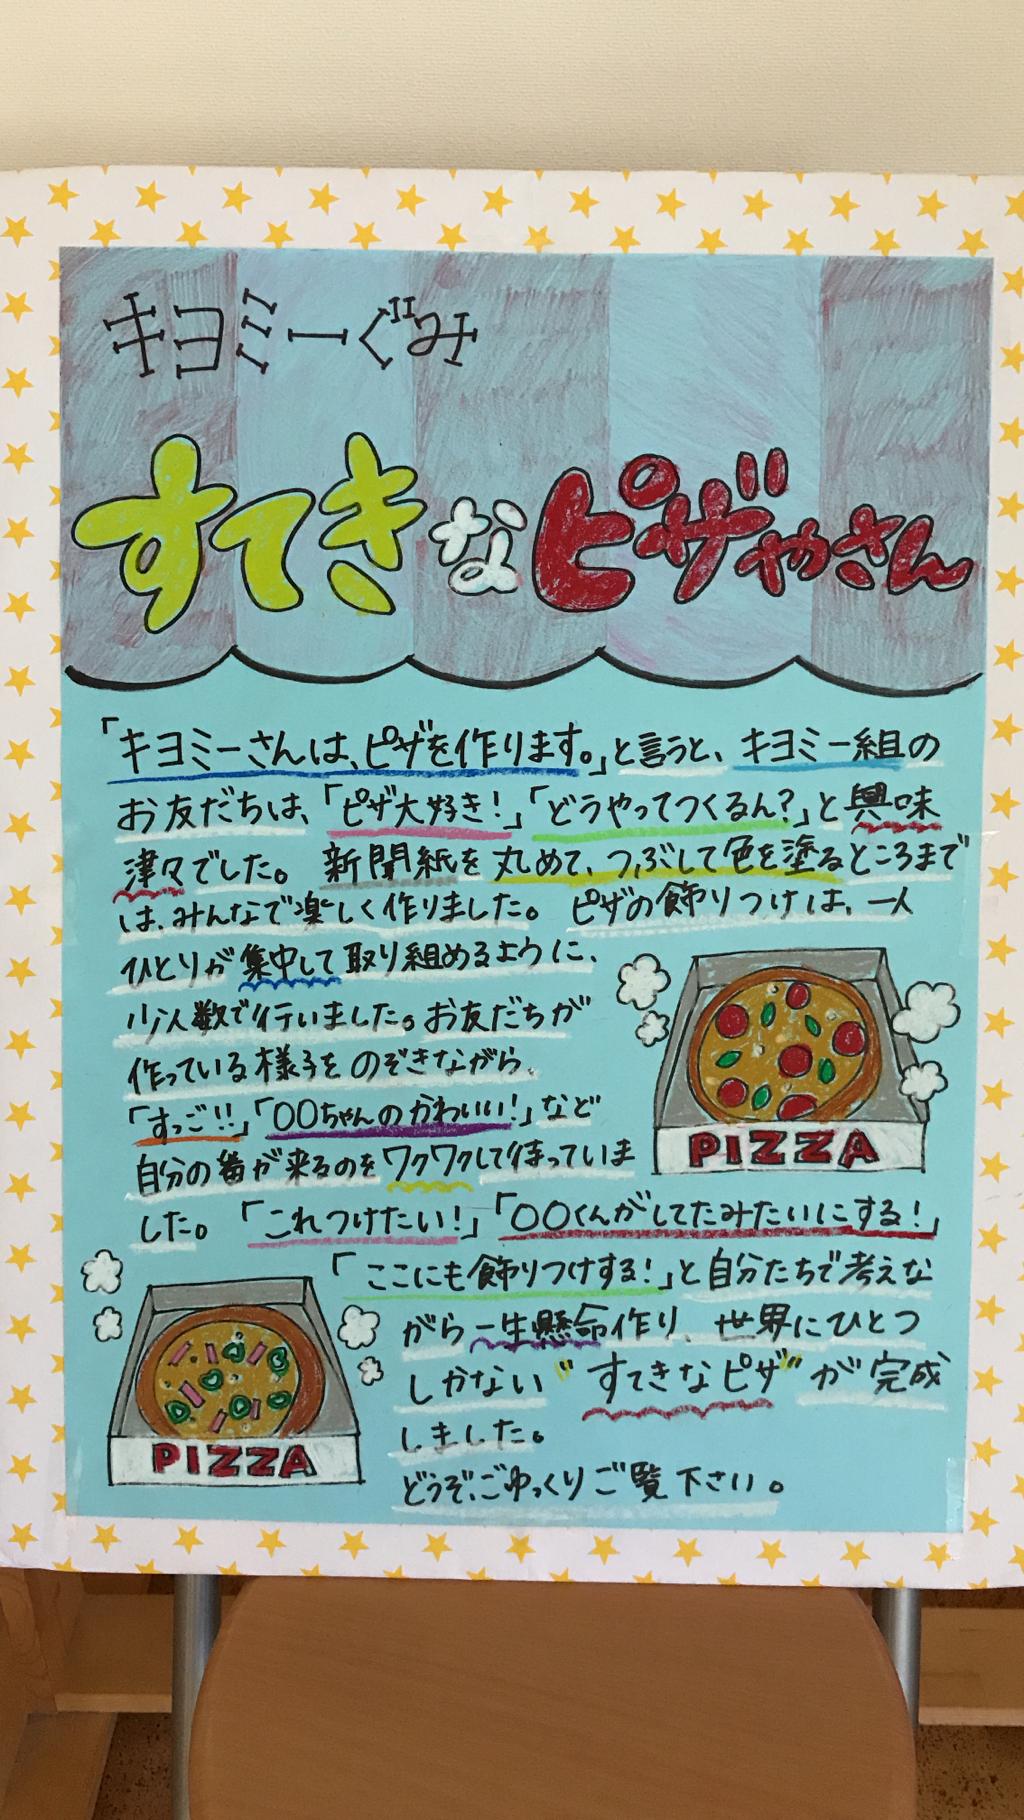 キヨミーぐみ
すてきなピザやさん
「キヨミーさんは、ピザを作ります。」と言うと、キヨミー組の
お友だちは、「ピザ大好き!」「どうやってつくるん?」と興味
津々でした。新聞紙を丸めて、つぶして色を塗るところまで
は、みんなで楽しく作りました。ピザの飾りつけは、一人
ひとりが集中して取り組めるように、
少人数で行いました。お友だちが
作っている様子をのぞきながら、
「すっご!!」「〇〇ちゃんのかわいい!」など
自分の番が来るのをワクワクして待っていま
した。「これつけたい!」「〇〇くんがしてたみたいにする!」
「ここにも飾りつけする!」と自分たちで考えな
がら一生懸命作り、世界にひとつ
しかない"すてきなピザ"が完成
しました。
どうぞ、ごゆっくりご覧下さい。
PIZZA
PIZZA